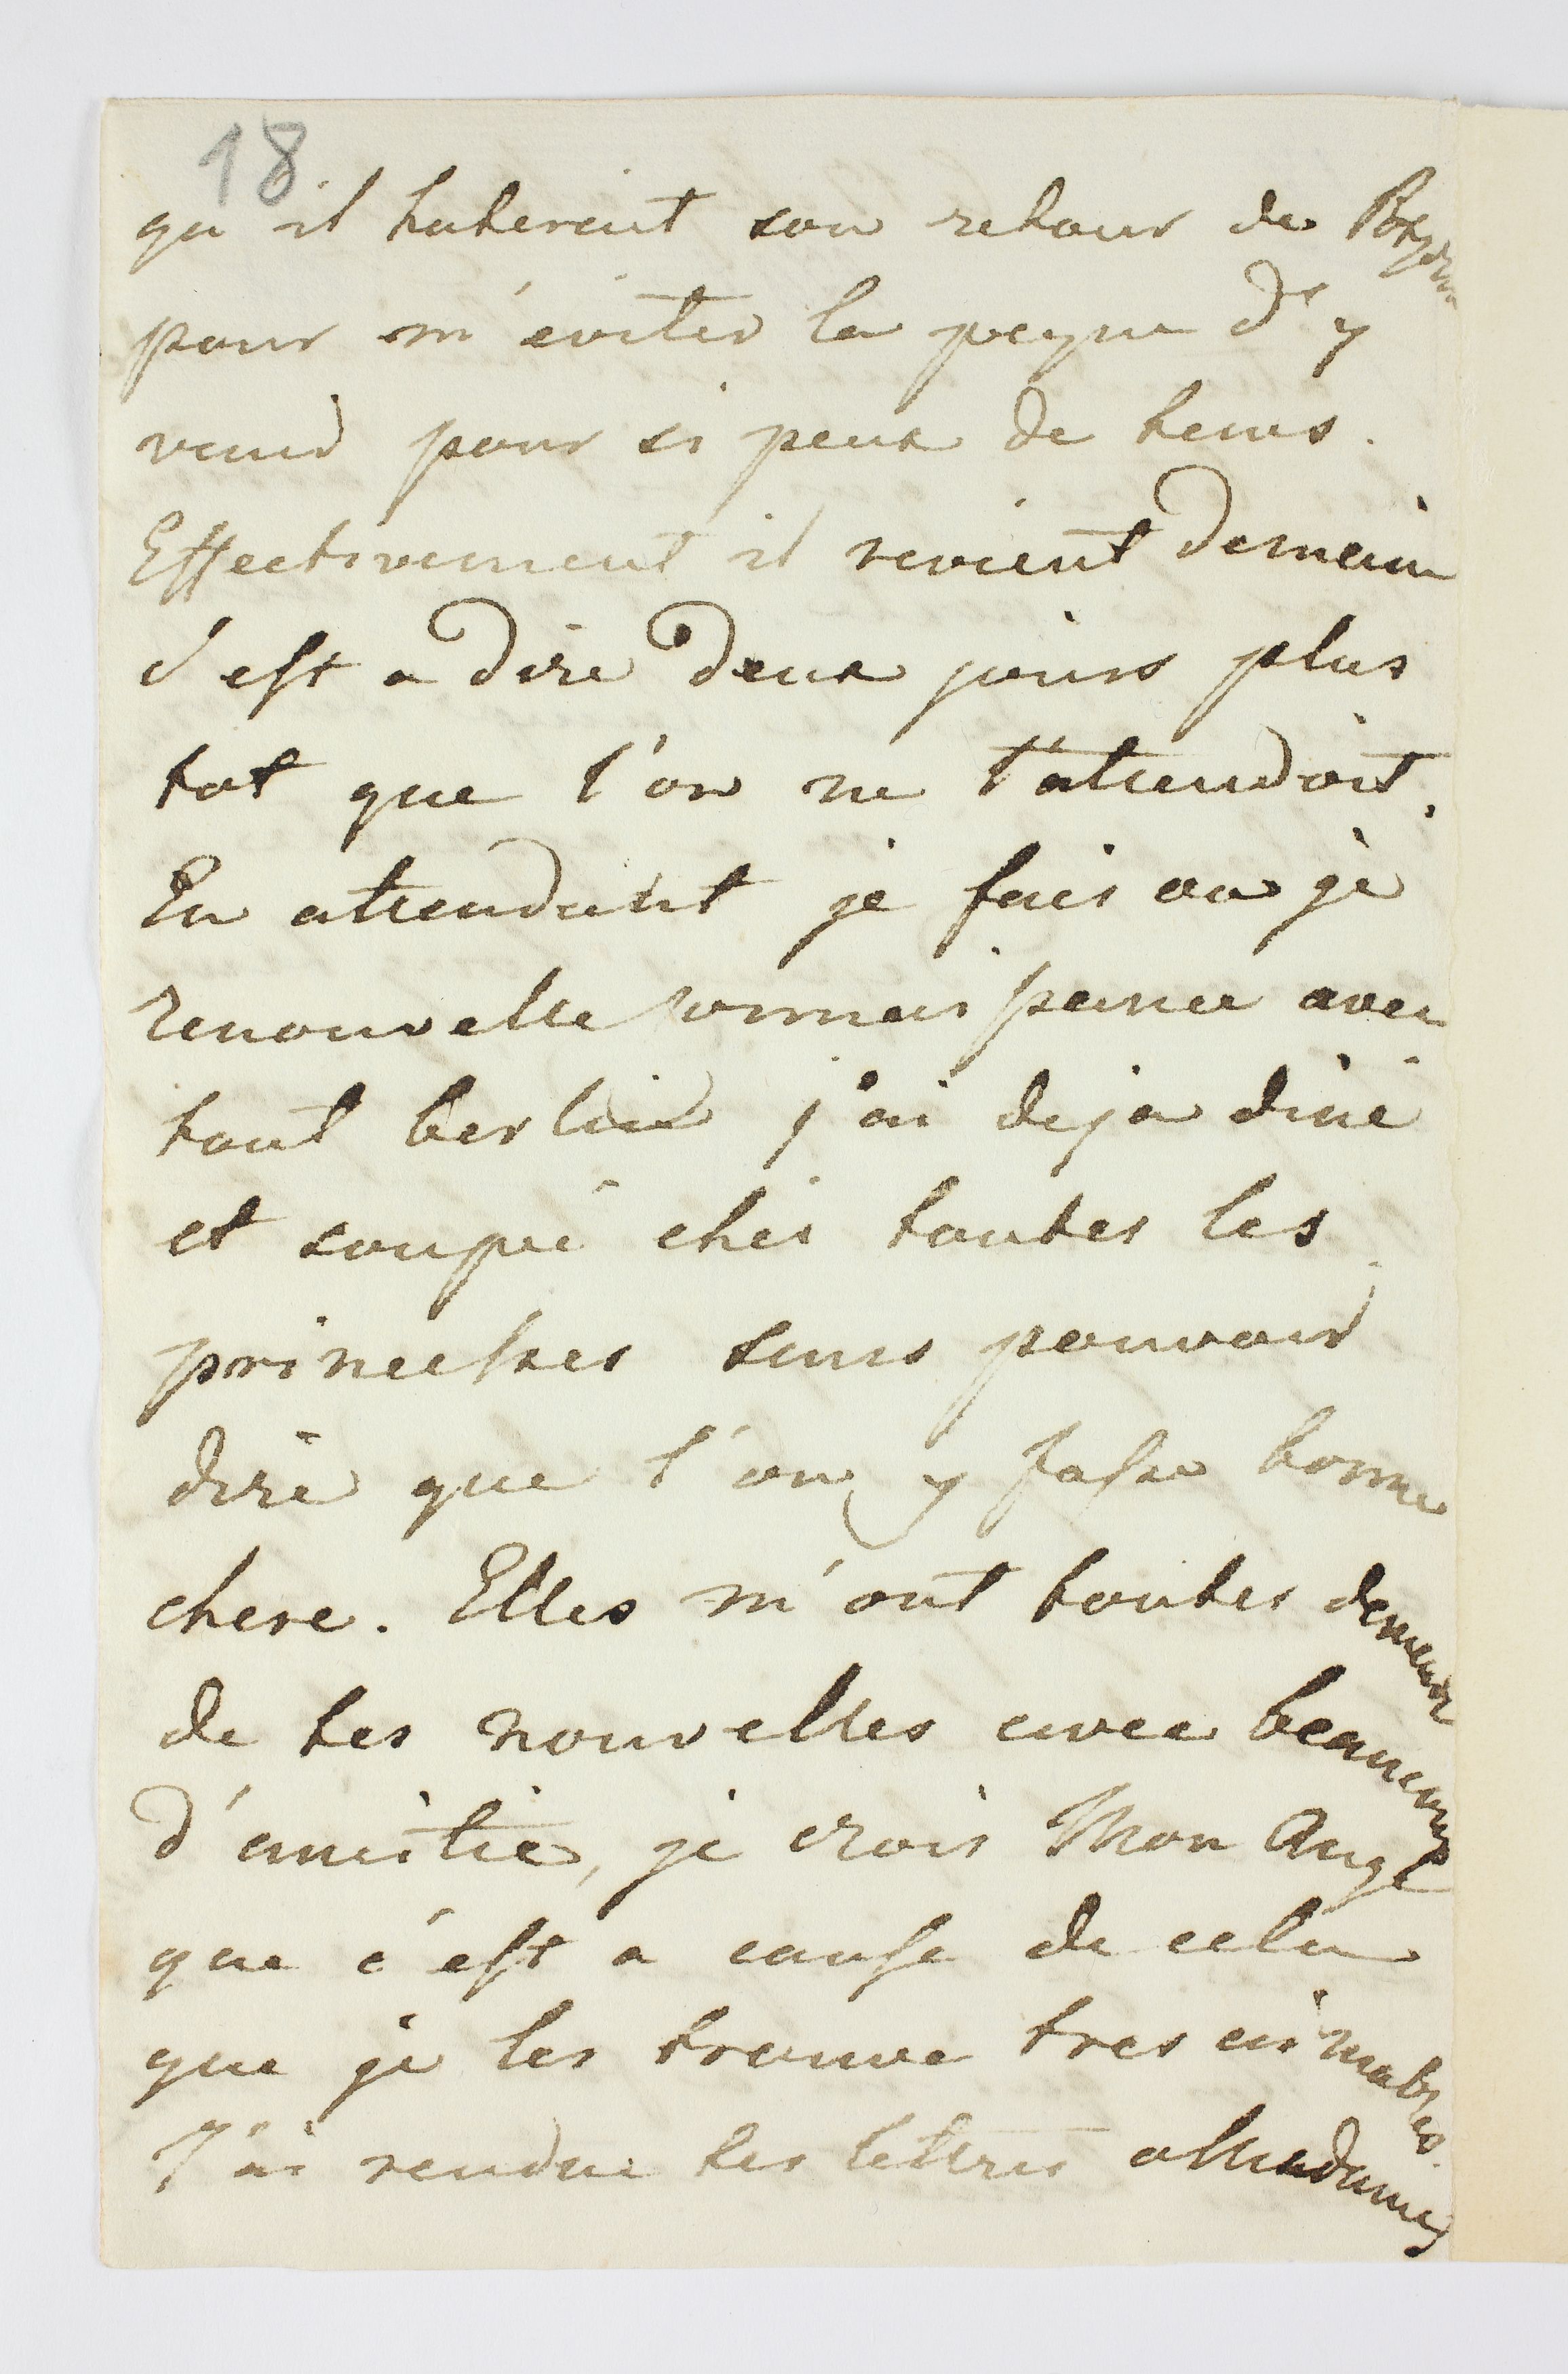 18
qu il hateroit son retour de
pour m'eviter la peyne d'y
venir pour si peux de tems.
Effectivement il revient demain
c'est a dire deux jours plus
tot que l'on ne l'attendoit.
En attendant je fais ou je
renouvelle connoissance avec
tout berlin j'ai deja diné
et soupé chés toutes les
princesses sans pouvoir
dire que l'on y fasse bonne
chere. Elles m'ont toutes demandé
de tes nouvelles avec beaucoup
d'amitié, je crois Mon Ange
que c'est a cause de cela
que je les trouve tres aimables.
J'ai rendue tes lettres a Madame